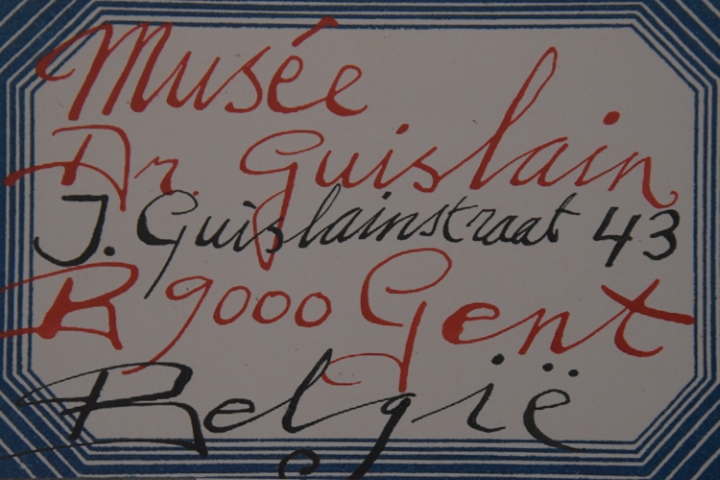 Musée
Dr. Guislain
J. Guislainstraat 43
B 9000 Gent
België